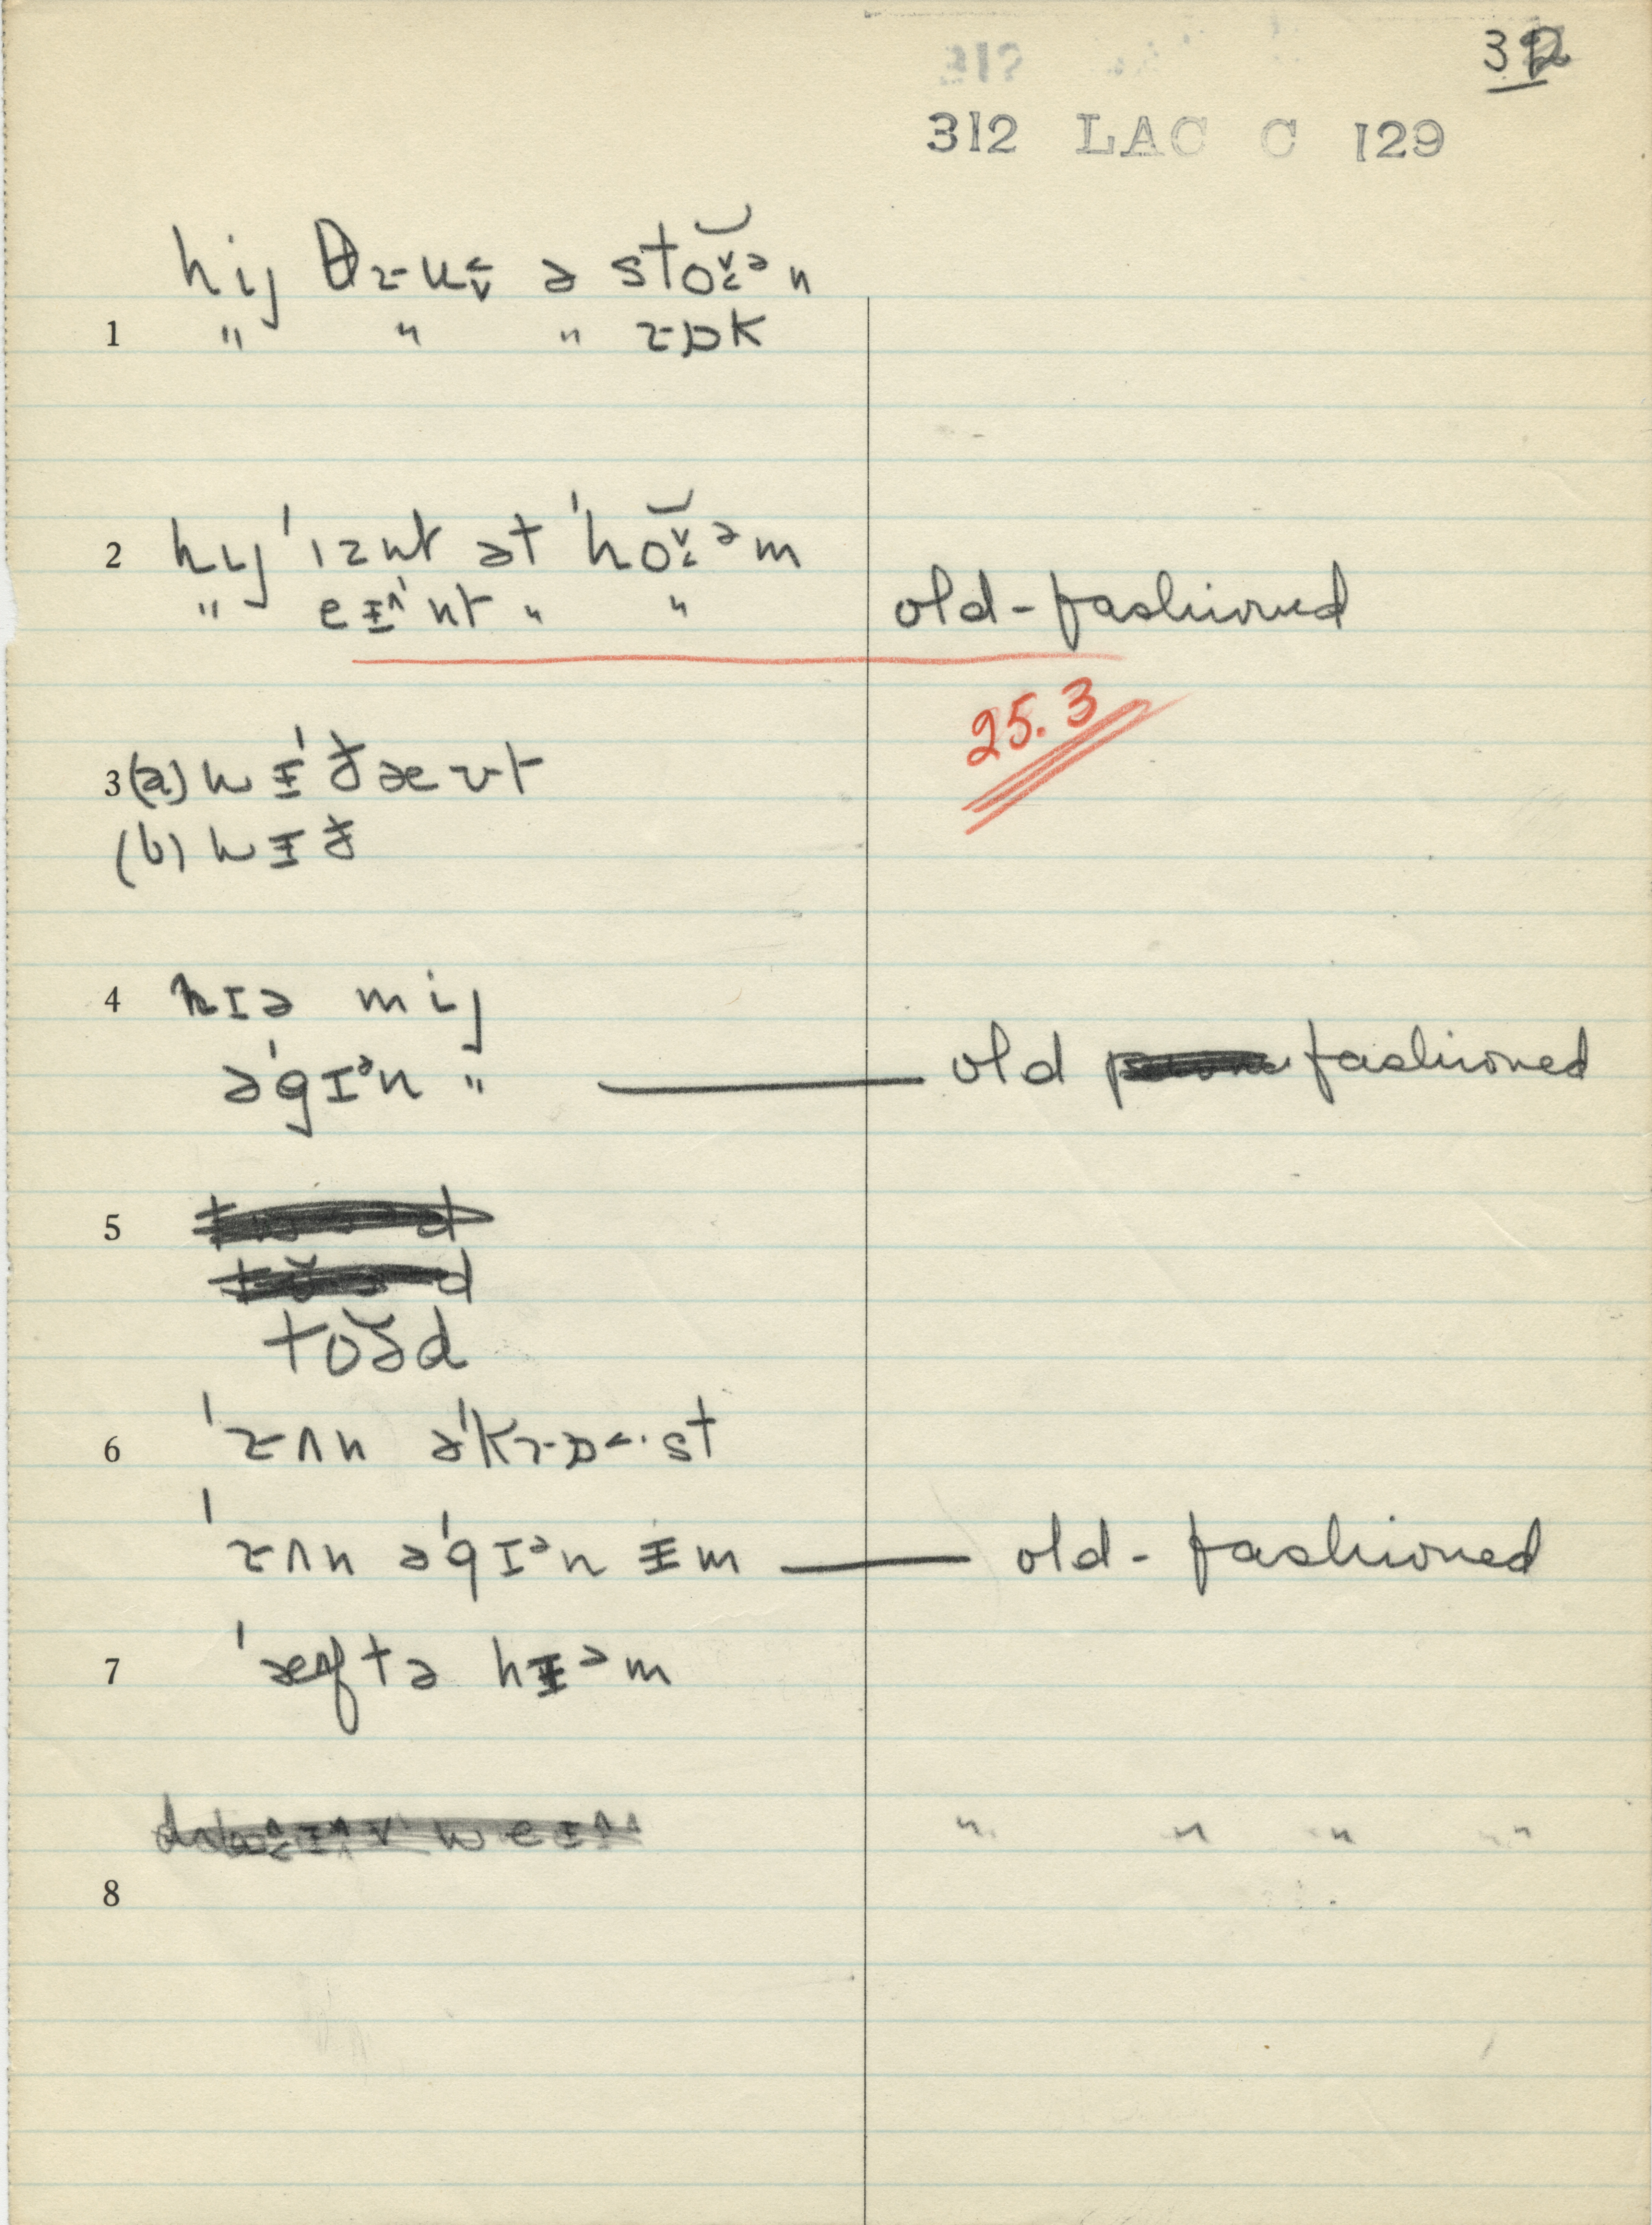 312
312
312 LAC C 129
hij θɹu˂˅ ə sto̯˅˂ᵊn
1 " " " ɹɒk
2 hɪj ˈɪznt ət ˈho̯˅˂ᵊm
" eɪ˄nt " " old-fashioned
25.3
3 (a) nɪˈðæʊt
(b) nɪð
4 nɪə mij
əˈgɪᵊn " — old fashioned
5
toə̆d
6 ˈɹʌn əˈkɹɒ˂·st
ˈɹʌn əˈgɪᵊn ɪm — old-fashioned
7 ˈæftə hɪᵊm
" " " "
8